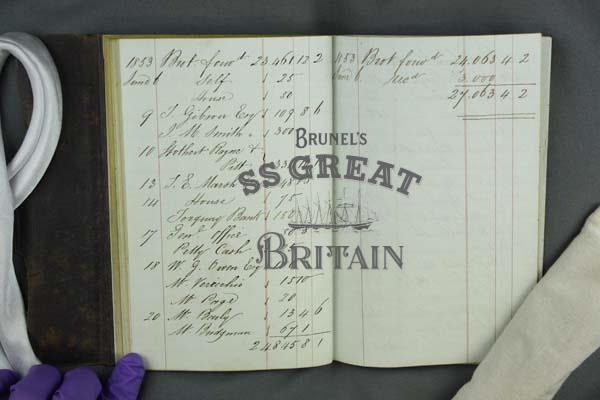 1853 Brot forwd 23461 12 2
June 6 Self 25
House 50
9 T. Gibson Esq 109 8 6
J. M. Smith 300
10 Stothert Rayne &
Pitt
13 T. E. Marsh
14 House 75
Torquay Bank 150
17 Office
Petty Cash
18 W. G. Owen Esq
Mr 1510
Mr Page 20
20 Mr 13 4 6
Mr Bridgman 67 1
24845 8 1
1853 Brot forwd 24,063 4 2
June 6 Recd 3,000
27,063 4 2
BRUNEL'S
SS GREAT
BRITAIN